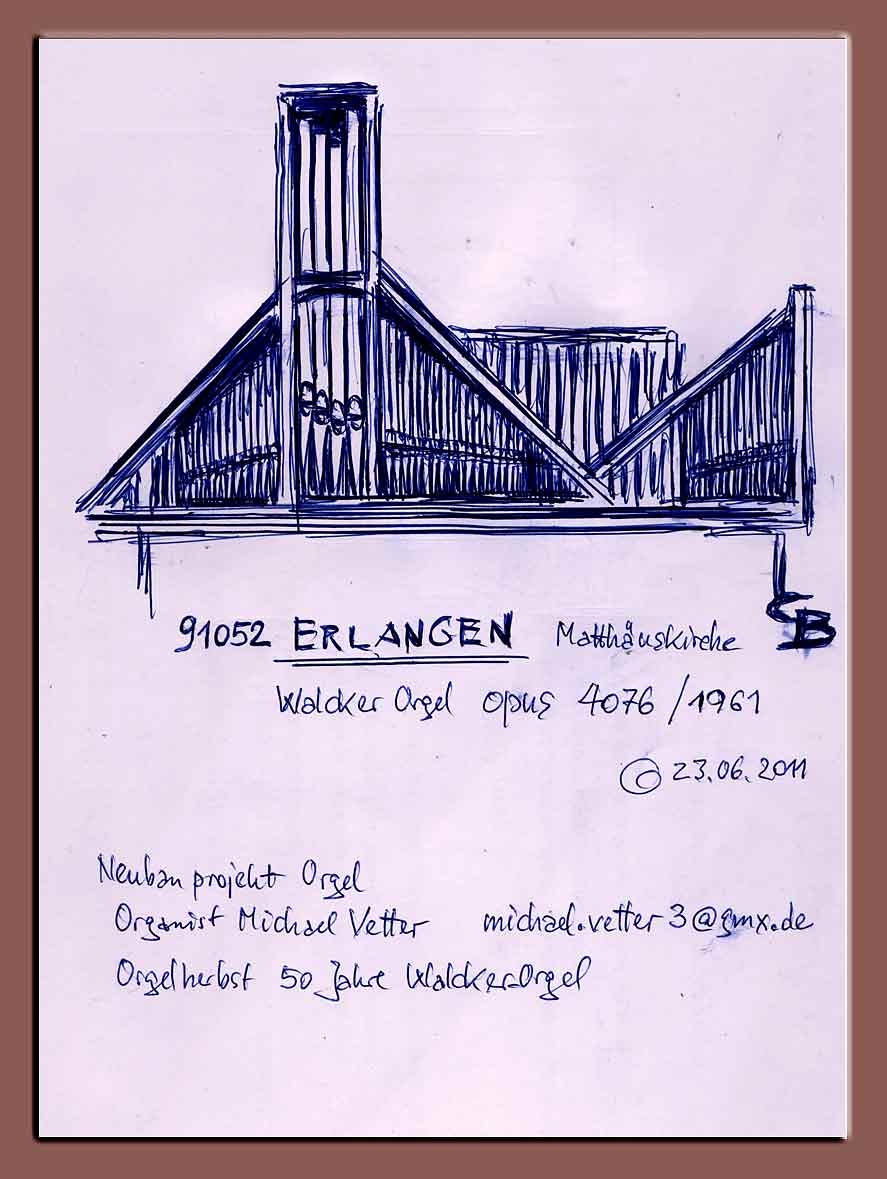 91052 ERLANGEN Matthäuskirche
Walcker Orgel opus 4076 / 1961
© 23.06.2011
Neubauprojekt Orgel
Organist Michael Vetter michael.vetter3@gmx.de
Orgelherbst 50 Jahre Walcker-Orgel